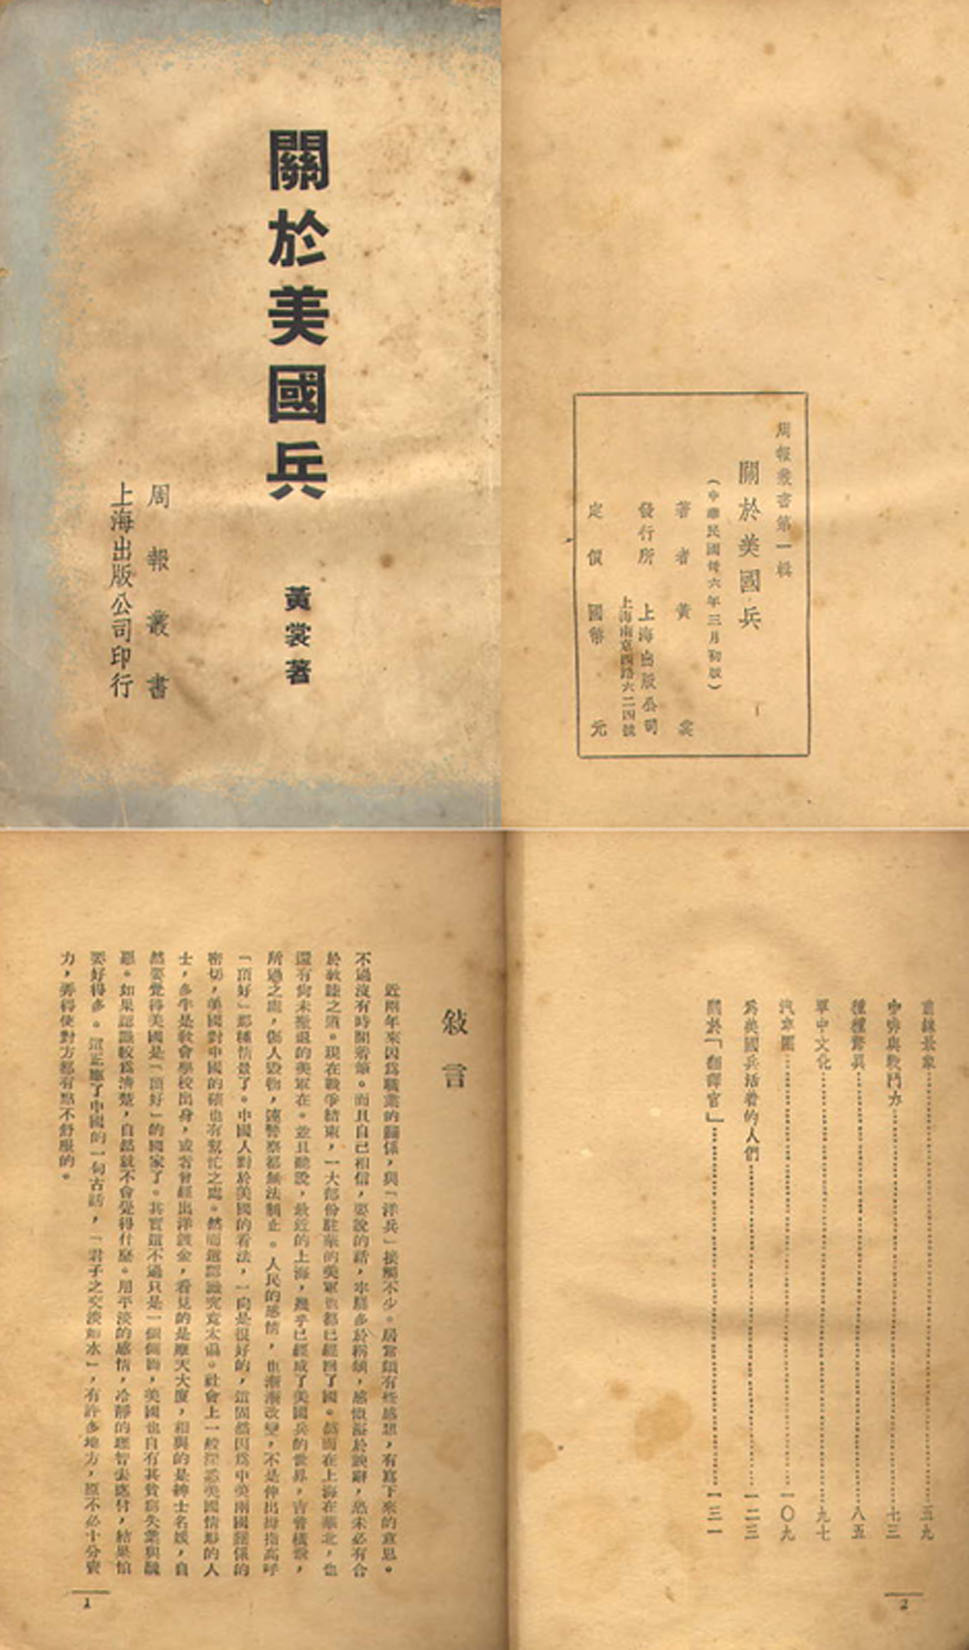 關於美國兵
黃裳著
周報叢書
上海出版公司印行
周報叢書第一輯
關於美國兵
(中華民國卅六年三月初版)
著者 黃裳
發行所 上海出版公司
上海南京西路六二四號
定價國幣 元
敍言
近兩年來因爲職業的關係，與「洋兵」接觸不少。居常頗有些感想，有寫下來的意思。
不過沒有時間着筆。而且自己相信，要說的話，牢騷多於稱頌，感慨溢於
於敦睦之道。現在戰爭結束，一大部份駐華的美軍也都已經回了國。然而在上海在華北，也
還有尙未撤退的美軍在。並且聽說，最近的上海，幾乎已經成了美國兵的世界，吉普橫
所過之處，傷人毀物，連警察都無法制止。人民的感情，也漸漸改變，不是伸出拇指高呼
「頂好」那種情景了。中國人對於美國的看法，一向是很好的，這固然因爲中美兩國關係的
密切，美國對中國的確也有幫忙之處。然而這認識究竟太淺。社會上一般 美國情形的人
士，多半是敎會學校出身，或者曾經出洋鍍金，看見的是摩天大廈，相與的是紳士名媛，自
然要覺得美國是「頂好」的國家了。其實這不過只是一個側面，美國也自有其貧窮失業與醜
惡。如果認識較爲清楚，自然就不會覺得什麼。用平淡的感情，冷靜的理智去應付，結果怕
要好得多。這正應了中國的一句古話，「君子之交淡如水」，有許多地方，原不必十分賣
力，弄得使對方都有點不舒服的。
1
前線景象 五九
咖啡與戰鬥力 七三
種種驚異 八五
軍中文化 九七
汽車團 一〇九
爲美國兵活着的人們 一二三
關於「翻譯官」 一三一
2